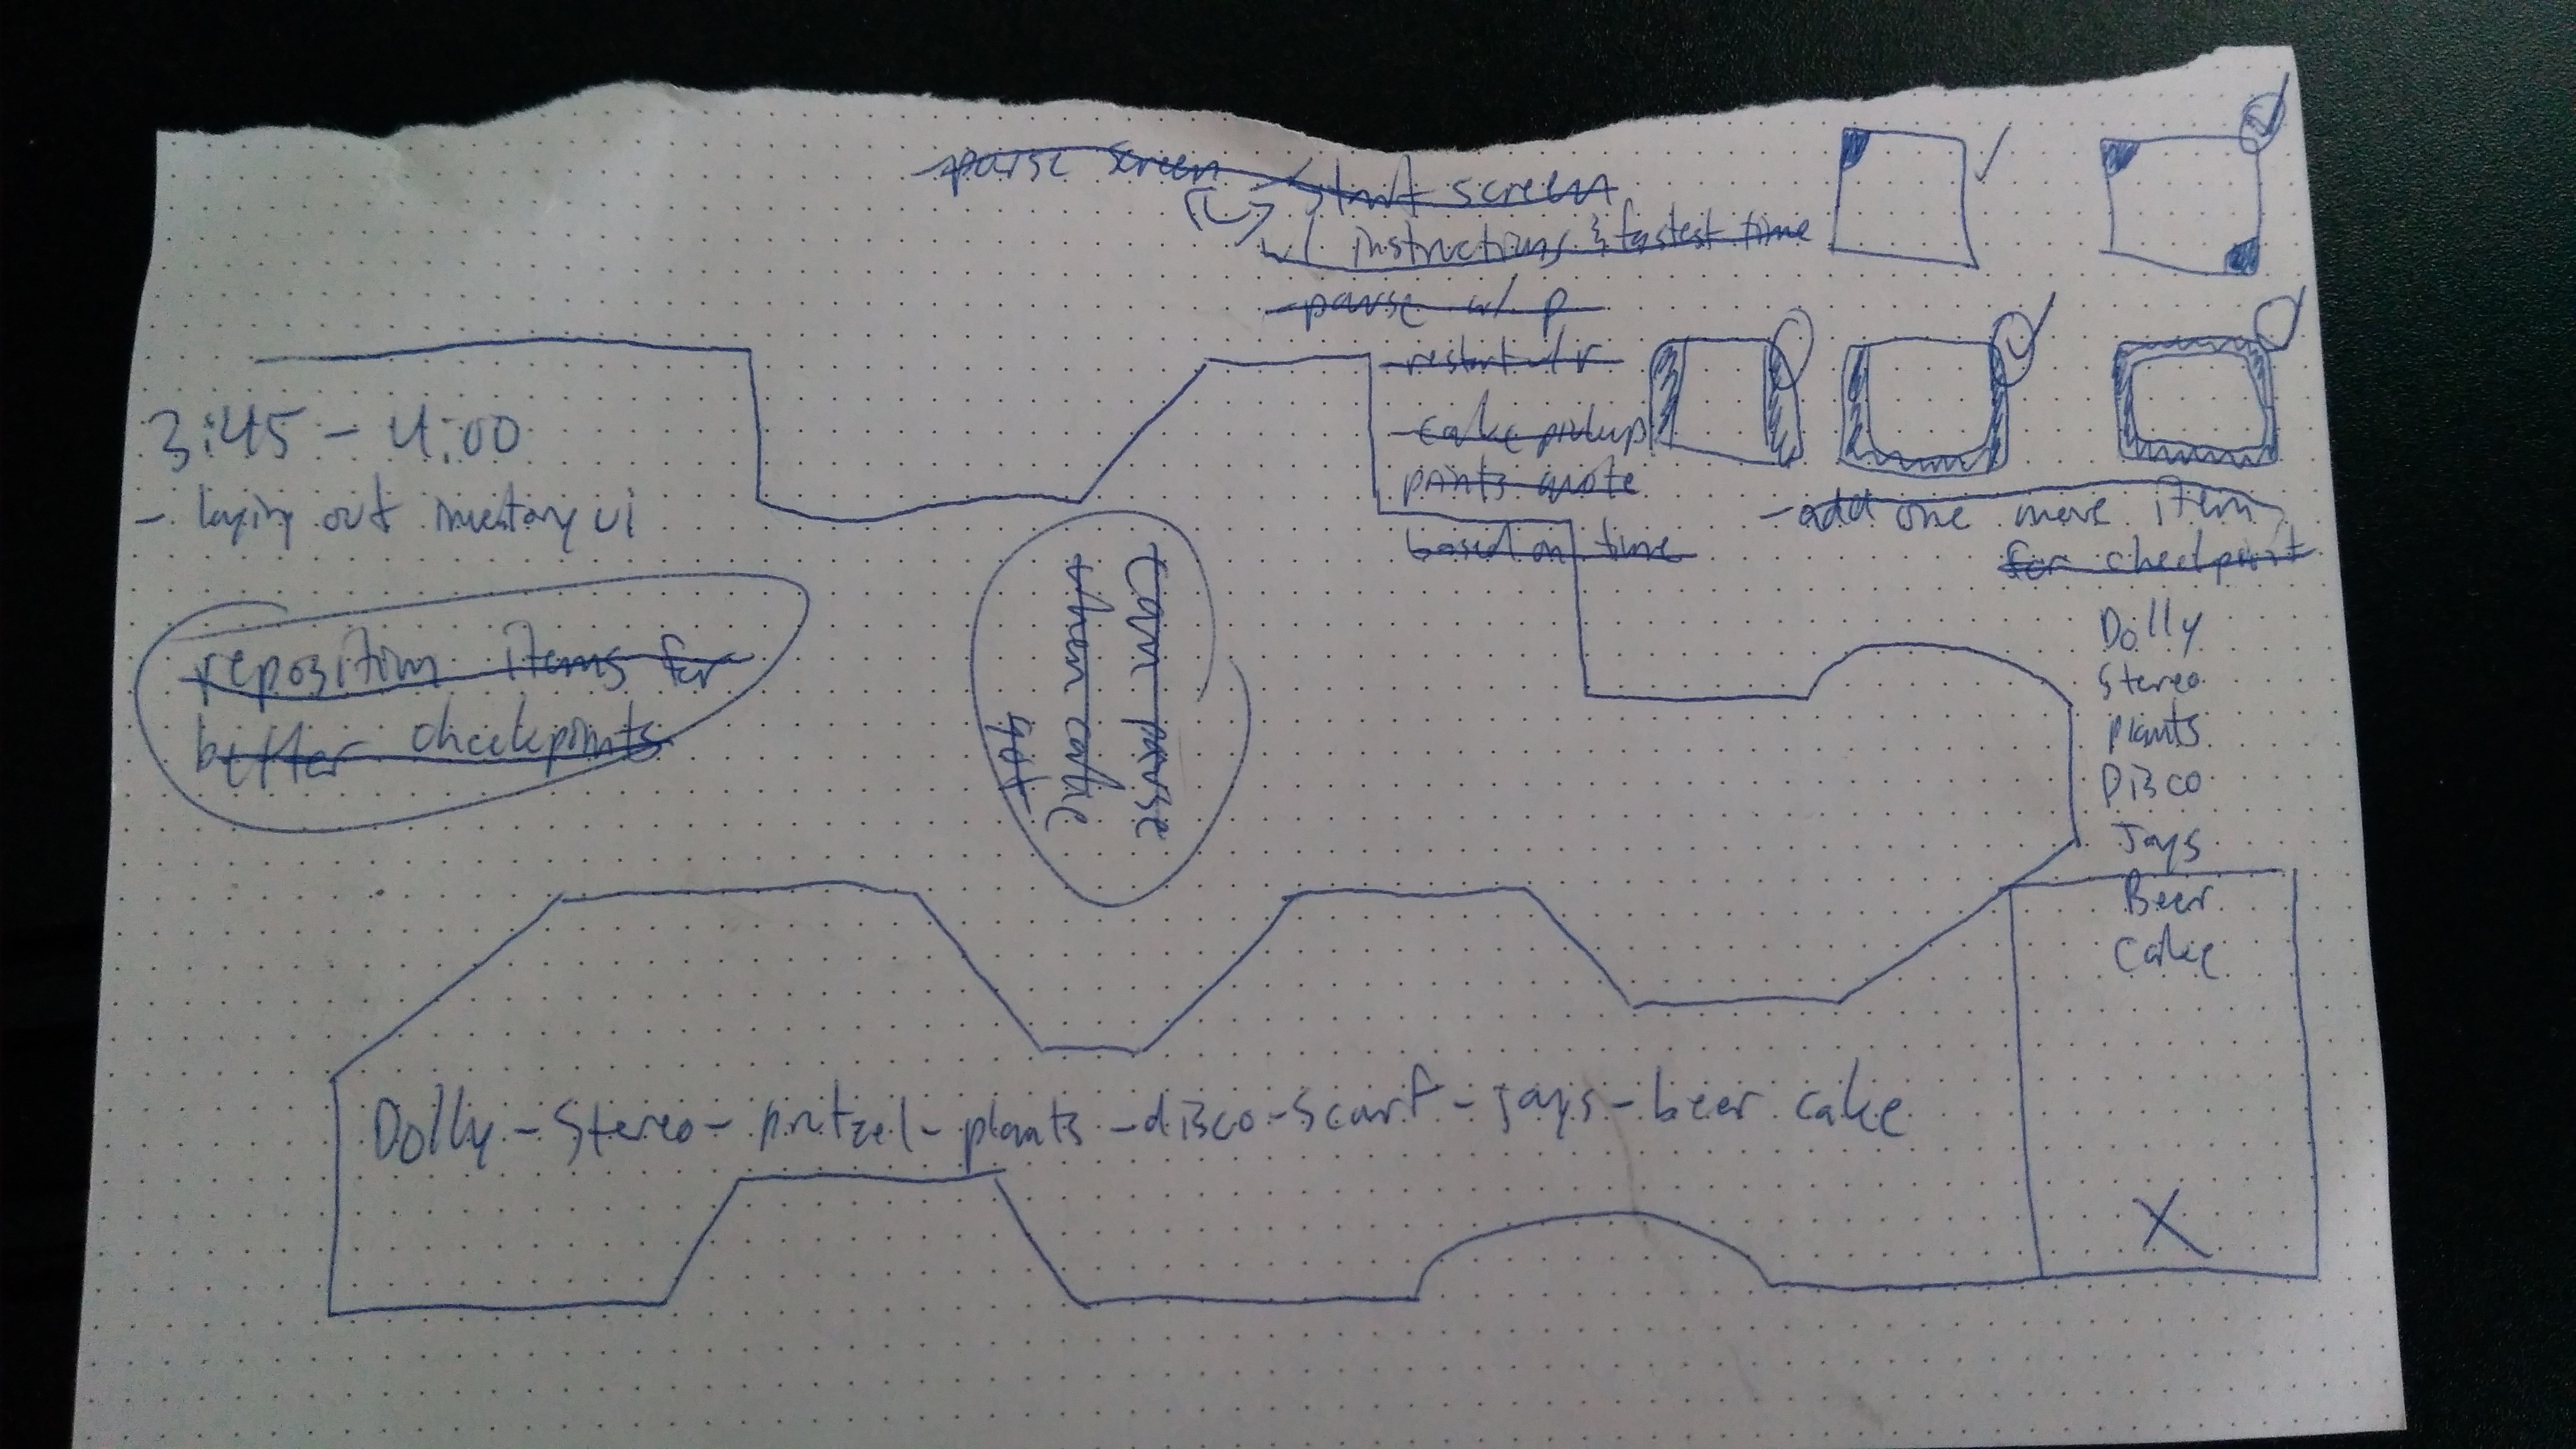 parse screen
start screen
instructions & fastest time
- pause w/ p
- restart w/ r
- cake pickup
prints quote
based on time
3:45 - 4:00
- laying out inventory ui
reposition items for
better checkpoints
can pause
when cake
got
- add one more item
for checkpoint
Dolly
Stereo
plants
Disco
Jays
Beer
Cake
Dolly - Stereo - pretzel - plants - disco - scarf - jays - beer cake
X